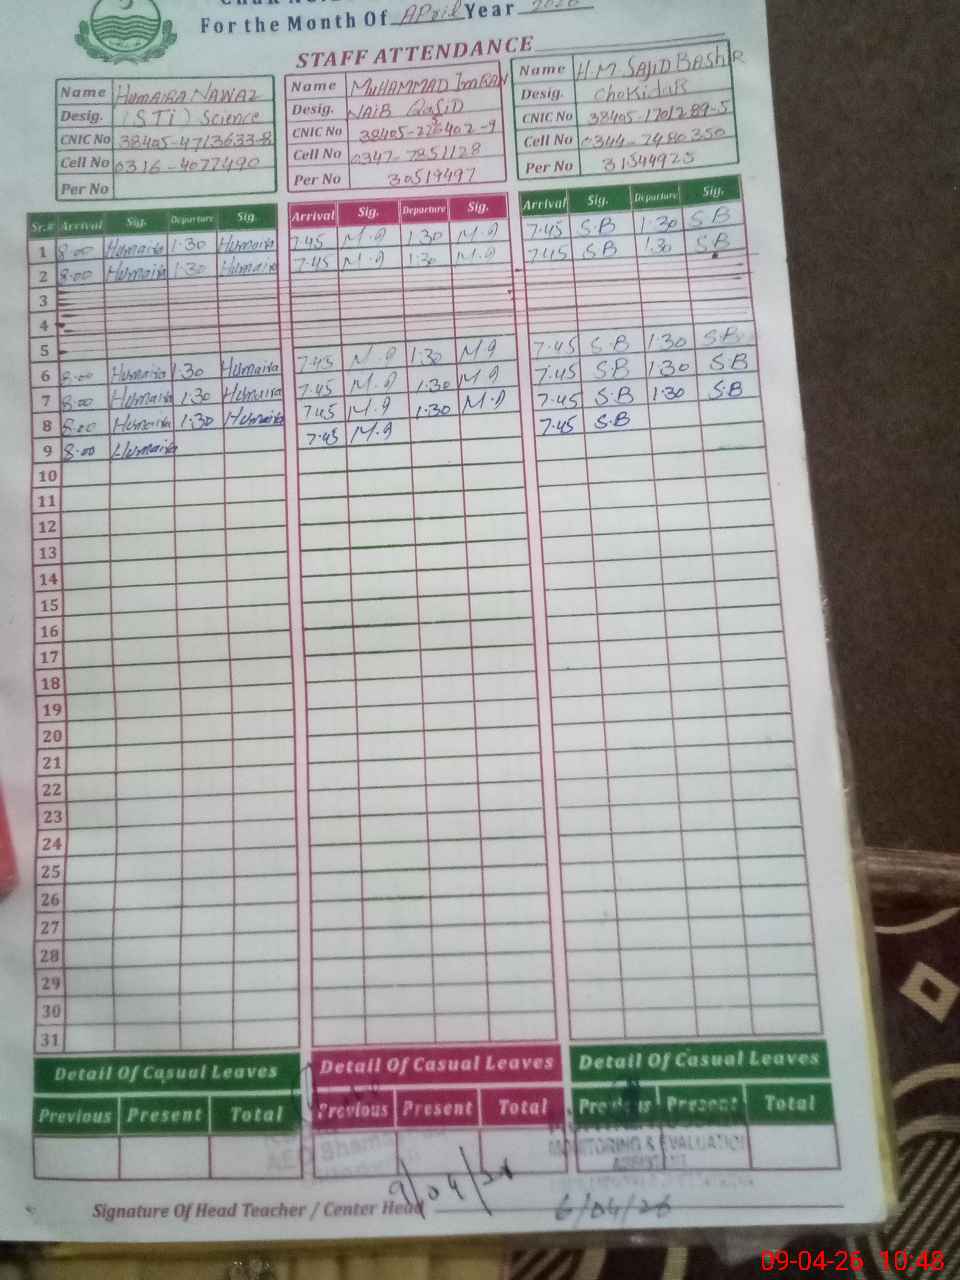 For the Month Of April Year
STAFF ATTENDANCE
Name HUMAIRA NAWAZ
Desig. (STI) Science
CNIC No 38405-4713633-8
Cell No 0316-4077490
Per No
Name MUHAMMAD IMRAN
Desig. NAIB QASID
CNIC No
Cell No 0347-7851128
Per No 30519497
Name H.M. SAJID BASHIR
Desig. ChoKidaR
CNIC No 38405-1701289-5
Cell No 0344-7480350
Per No 31544925
Sr.# Arrival Sig. Departure Sig. Arrival Sig. Departure Sig. Arrival Sig. Departure Sig.
1 8.00 Humaira 1.30 Humaira 7.45 1.30 7.45 S.B 1.30 S.B
2 8.00 Humaira 1.30 Humaira 7.45 1.30 7.45 S.B 1.30 S.B
3
4
5
6 8.00 Humaira 1.30 Humaira 7.45 1.30 7.45 S.B 1.30 S.B
7 8.00 Humaira 1.30 Humaira 7.45 1.30 7.45 S.B 1.30 S.B
8 8.00 Humaira 1.30 Humaira 7.45 1.30 7.45 S.B 1.30 S.B
9 8.00 Humaira 7.45 7.45 S.B
10
11
12
13
14
15
16
17
18
19
20
21
22
23
24
25
26
27
28
29
30
31
Detail Of Casual Leaves Detail Of Casual Leaves Detail Of Casual Leaves
Previous Present Total Previous Present Total Previous Present Total
MONITORING & EVALUATION
ASSISTANT
9/04/26
Signature Of Head Teacher / Center Head
6/04/26
09-04-26 10:48